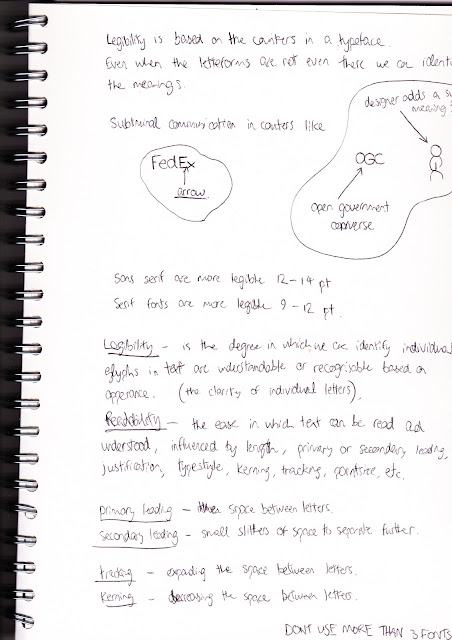 Legibility is based on the counters in a typeface.
Even when the letterforms are not even there we can identi
the meanings.
designer adds a su
meaning s
Subliminal communication in counters like
FedEx
arrow
OGC
OGC
open government
Sans serif are more legible 12-14 pt
Serif fonts are more legible 9-12 pt.
Legibility - is the degree in which we can identify individual
glyphs in text are understandable or recognisable based on
apperance. (the clarity of individual letters).
Readability - the ease in which text can be read and
understood, influenced by length, primary or secondary leading,
justification, typestyle, kerning, tracking, pointsize, etc.
primary leading - space between letters.
secondary leading - small slithers of space to separate further.
tracking - expanding the space between letters.
kerning - decreasing the space between letters.
DONT USE MORE THAN 3 FONTS